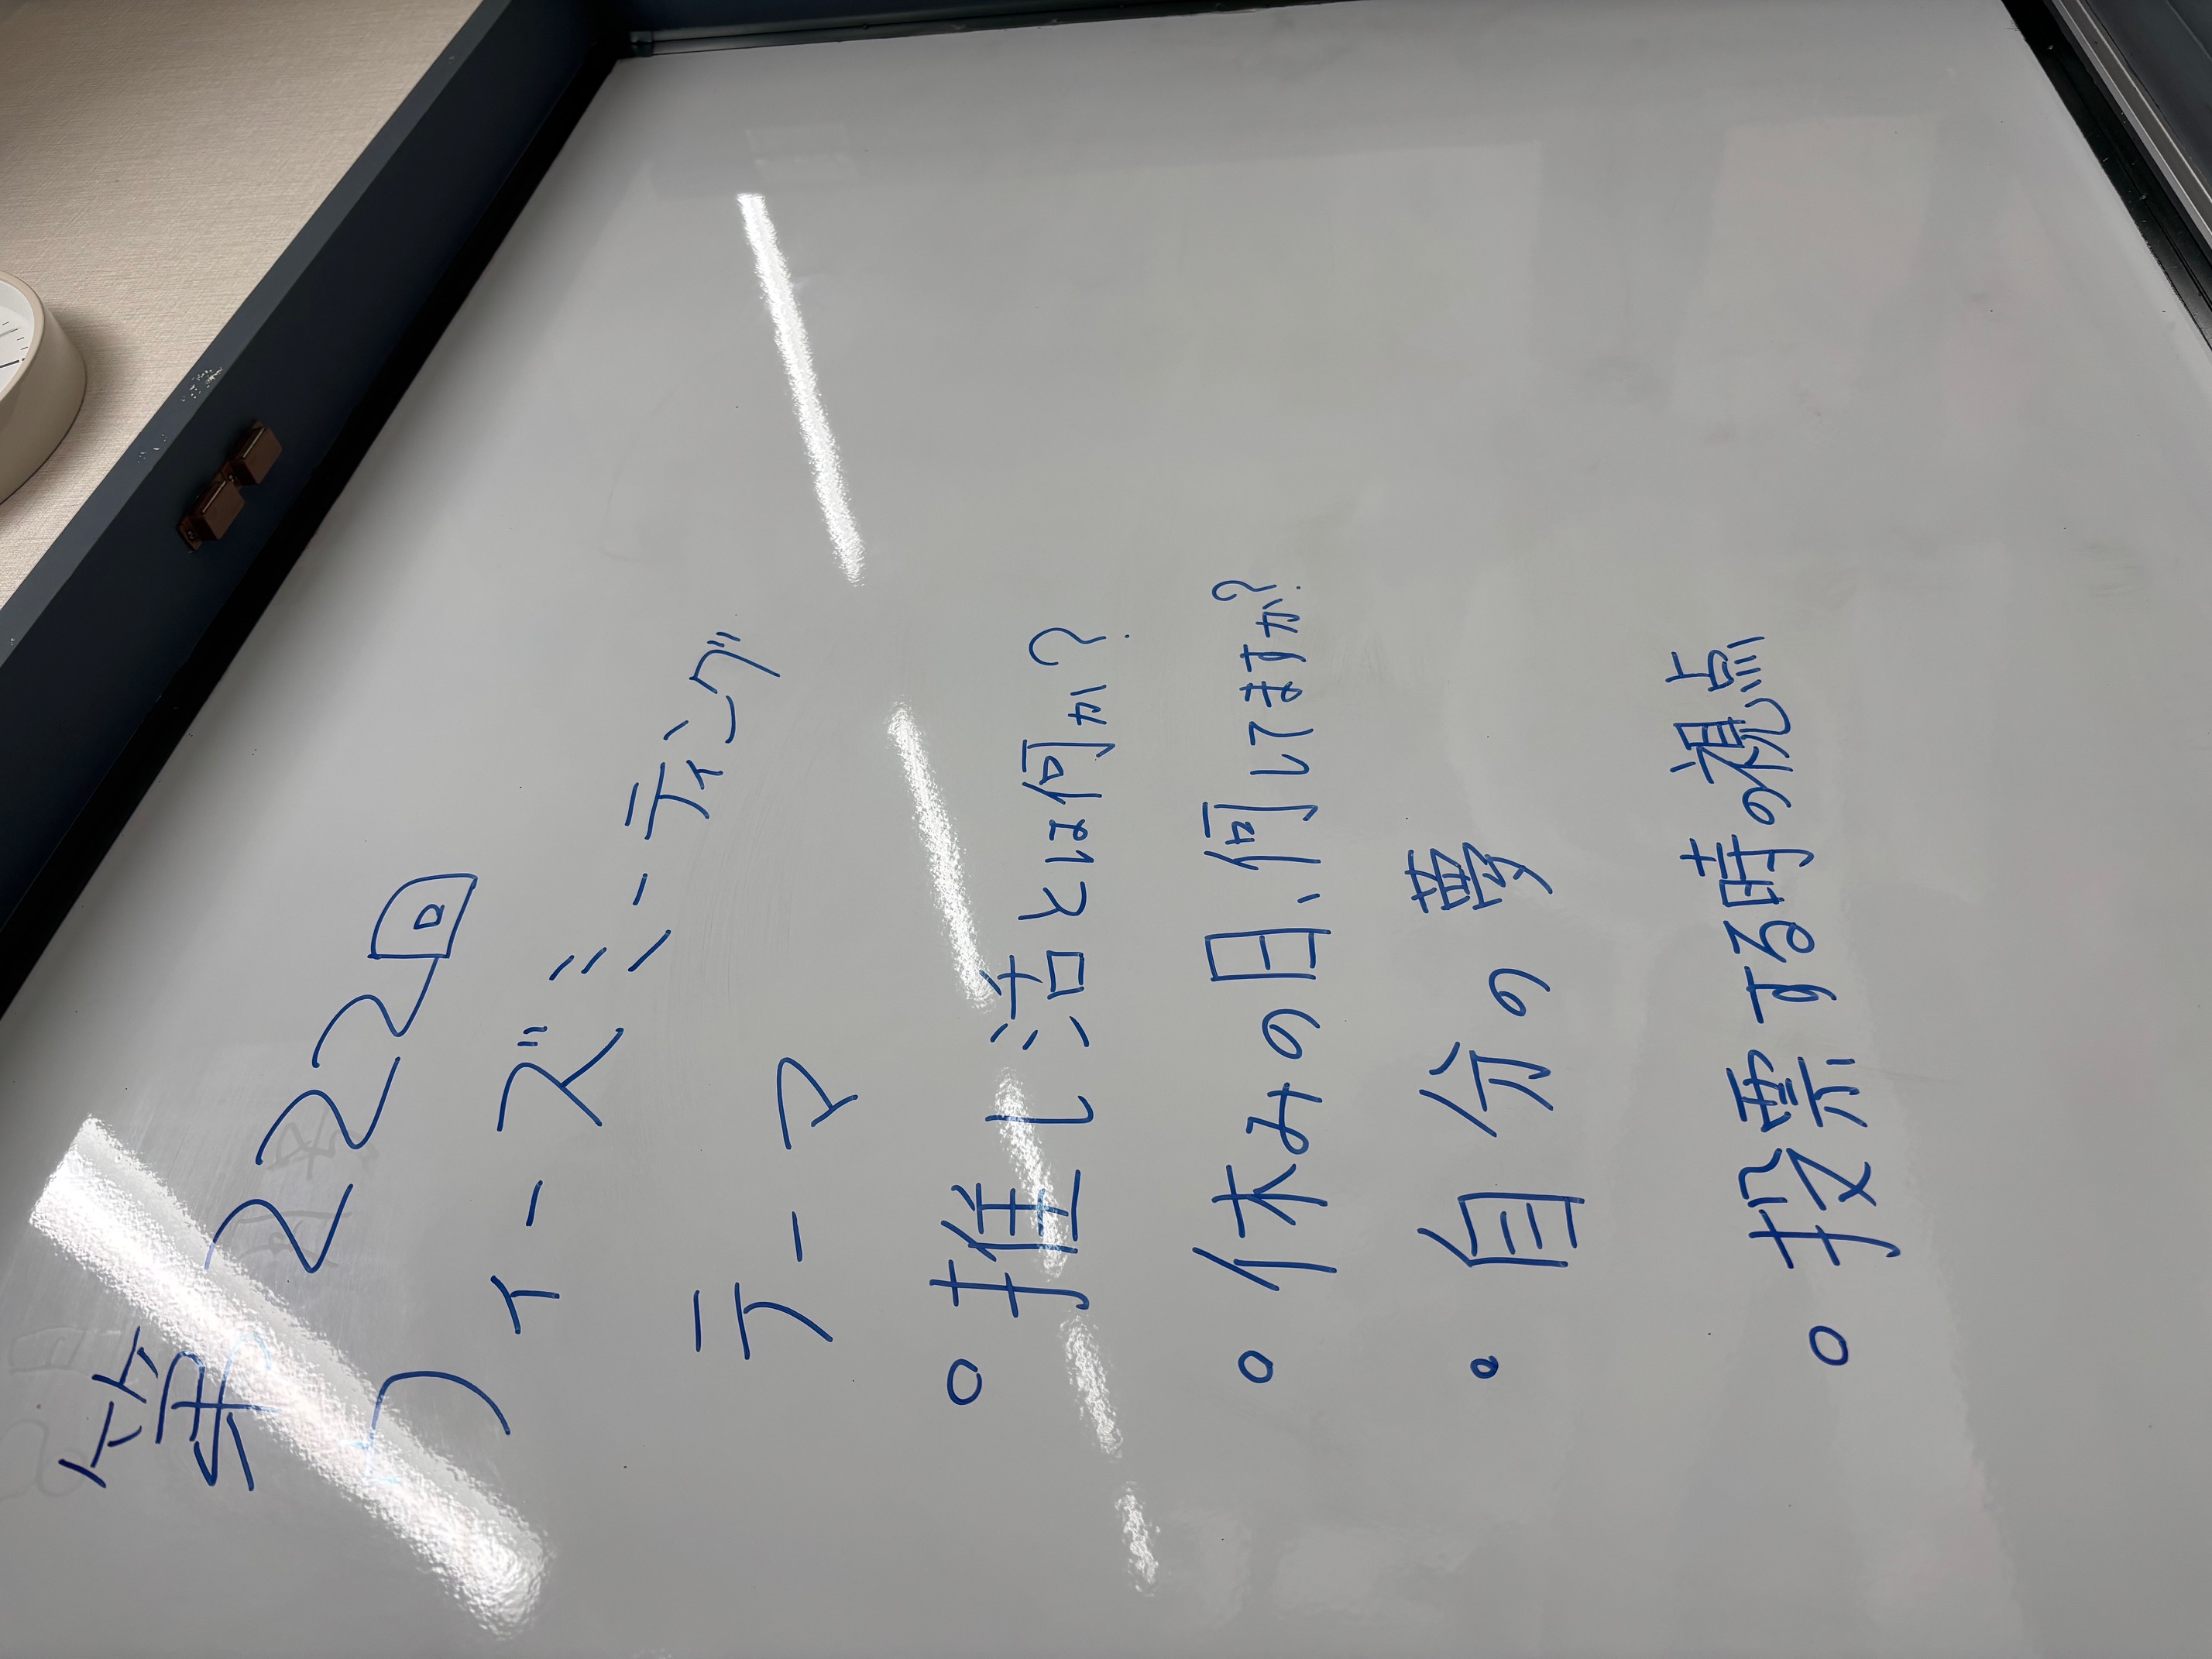 第222回
ワイーズミーティング
テーマ
○推し活とは何か?
○休みの日、何してますか?
○自分の夢
○投票する時の視点